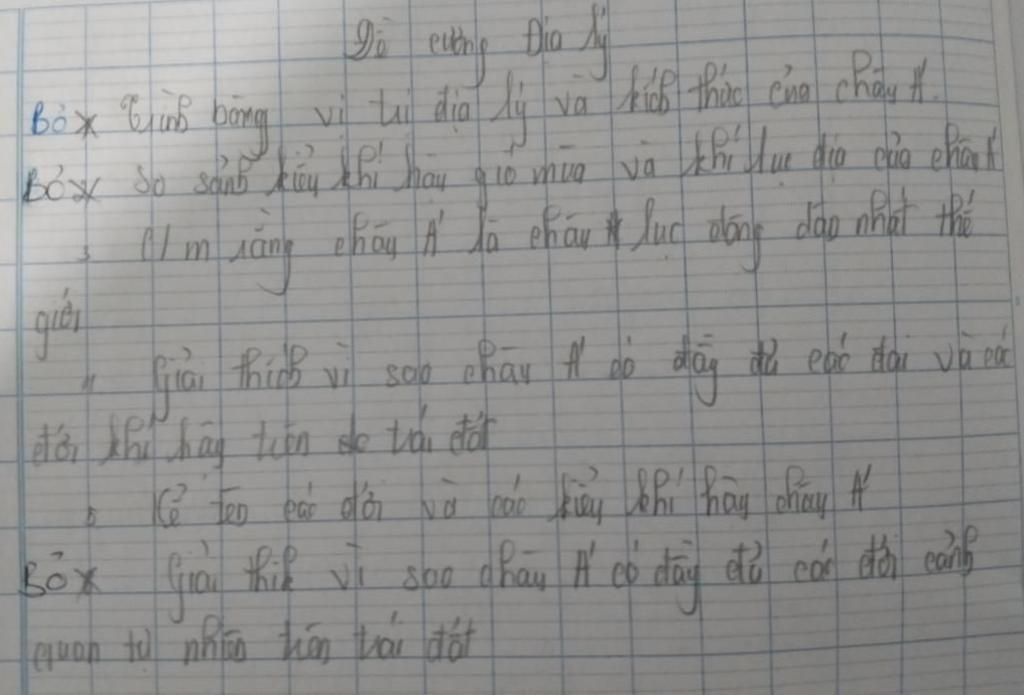 Đề cương Địa lý
Bỏ x Trình bày vị trí địa lý và kích thức của châu Á.
Bỏ x So sánh kiểu khí hậu gió mùa và khí lục địa của châu Á
3 C/m rằng châu Á là châu lục đông dân nhất thế
giới
4 Giải thích vì sao châu Á có đầy đủ các đai và các
đới khí hậu trên trái đất
5 Kể tên các đới và các kiểu khí hậu châu Á
Bỏ x Giải thik vì sao châu Á có đầy đủ các đới cảnh
quan tự nhiên trên trái đất